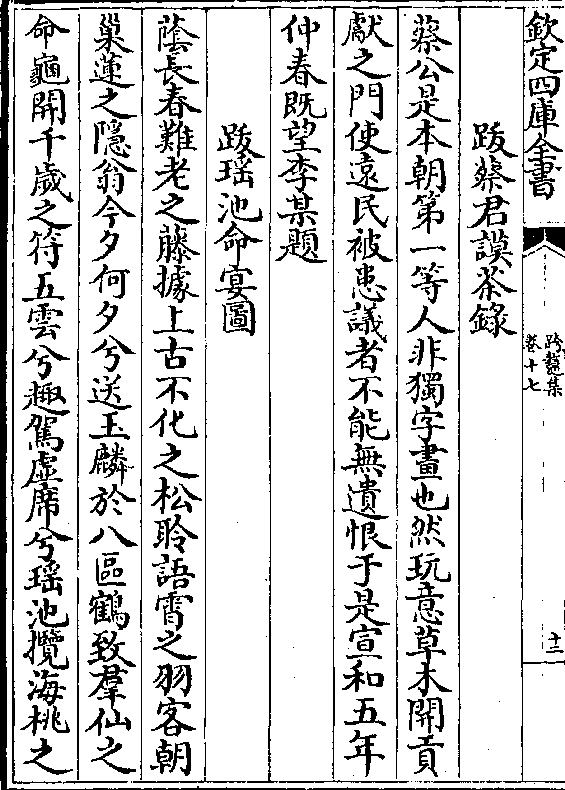 欽定四庫全書
跨鼇集
卷十七
十二
跋蔡君謨茶錄
蔡公是本朝第一等人非獨字畫也然玩意草木開貢
獻之門使遠民被患議者不能無遺恨于是宣和五年
仲春既望李某題
跋瑶池命宴圖
蔭長春難老之藤據上古不化之松聆語霄之羽客朝
巢蓮之隱翁今夕何夕兮送玉麟於八區鶴致羣仙之
命龜開千歲之符五雲兮趣駕虛席兮瑶池攬海桃之